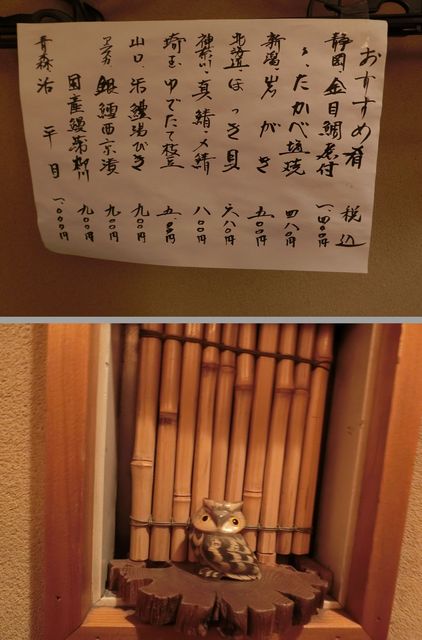 おすすめ肴 税込
静岡、金目鯛煮付 一、四〇〇円
〃、たかべ塩焼 四八〇円
新潟、岩がき 五〇〇円
北海道、ほっき貝 六八〇円
神奈川、真鯖・〆鯖 八〇〇円
埼玉、ゆでたて枝豆 五〇〇円
山口、活鱧湯びき 九〇〇円
アラスカ 銀鱈西京漬 九〇〇円
国産鰻 柳川 九〇〇円
青森 活平目 一、〇〇〇円